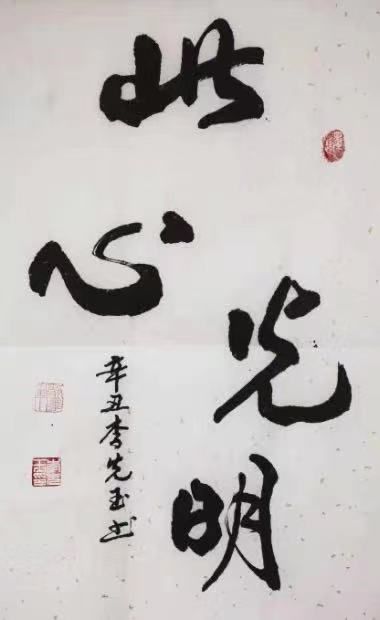 此心光明
辛丑李先玉书